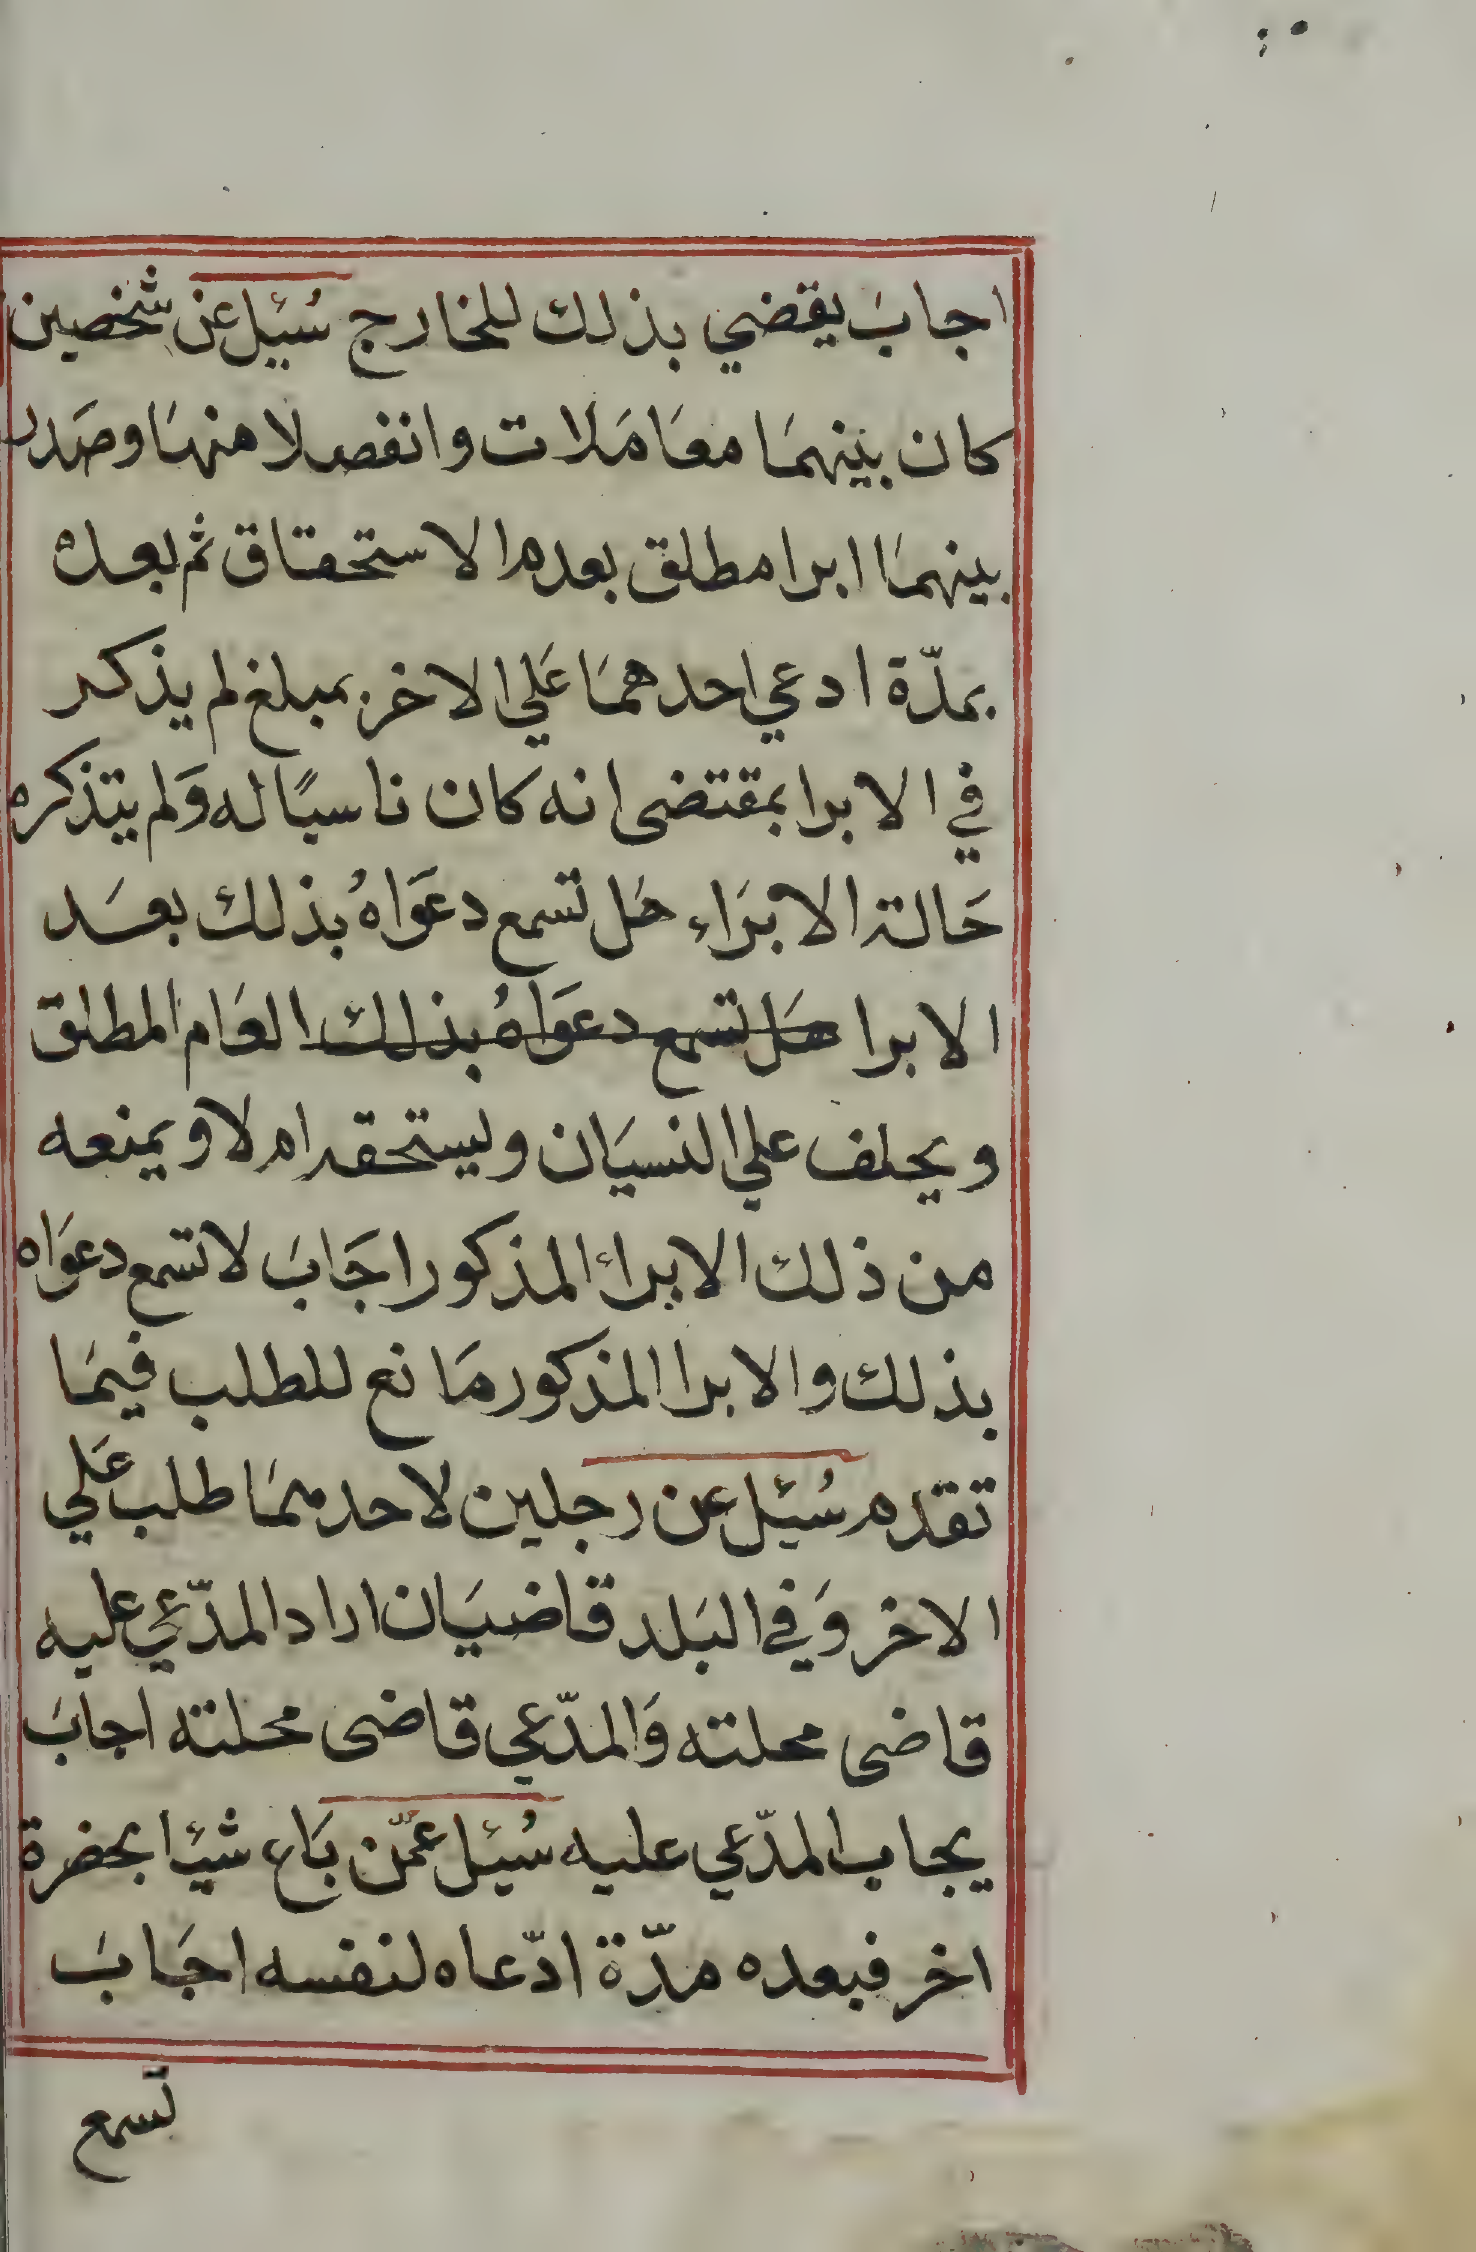 اجابَ يقضي بذلك للخارج سُئيل عن شخصين
كان بينهمَا معَامَلات وانفصلا منهَا وصَدر
بينهمَا ابرا مطلق بعدم الاستحقاق ثم بعده
بمدّة ادعي احدهمَا عَلي الاخر بمبلغ لم يذكر
في الابرا بمقتضى انه كان ناسيًا له وَلم يتذكره
حَالة الابرَاء هَل تسمع دعوَاهُ بذلك بعَد
الابرا هَل تسمع دعوَاهُ بذلك العَام المطلق
ويحلف علي النسيَان ويستحقه ام لا ويمنعه
من ذلك الابراء المذكور اجَابَ لا تسمع دعوَاه
بذلك والابرا المذكور مَانع للطلب فيمَا
تقدم سُئيل عن رجلين لاحدهمَا طلب عَلي
الاخر وَفي البَلد قاضيَان اراد المدّعي عليه
قاضى محلته وَالمدّعي قاضى محلته اجابَ
يجاب المدّعي عليه سُئيل عمّن بَاع شيئا بحضرة
اخر فبعده مدّة ادّعاه لنفسه اجَابَ
تسمع